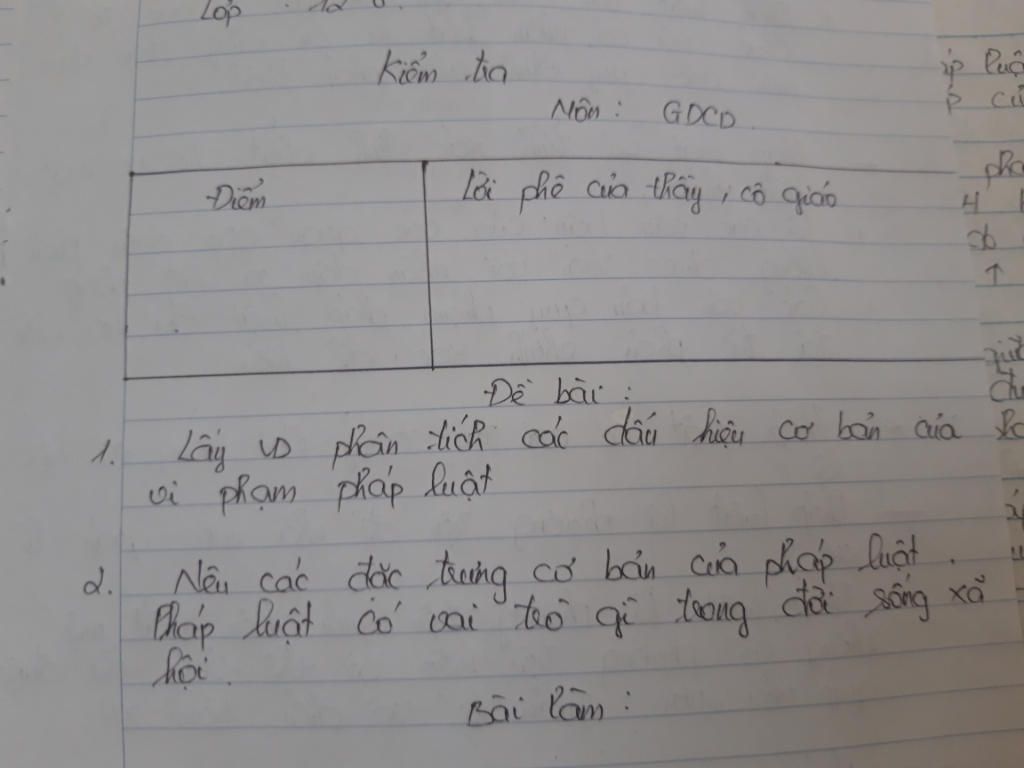 Lớp :
Kiểm tra
Môn : GDCD
Điểm
Lời phê của thầy, cô giáo
Đề bài :
1. Lấy VD phân tích các dấu hiệu cơ bản của
vi phạm pháp luật
2. Nêu các đặc trưng cơ bản của pháp luật.
Pháp luật có vai trò gì trong đời sống xã
hội.
Bài làm :